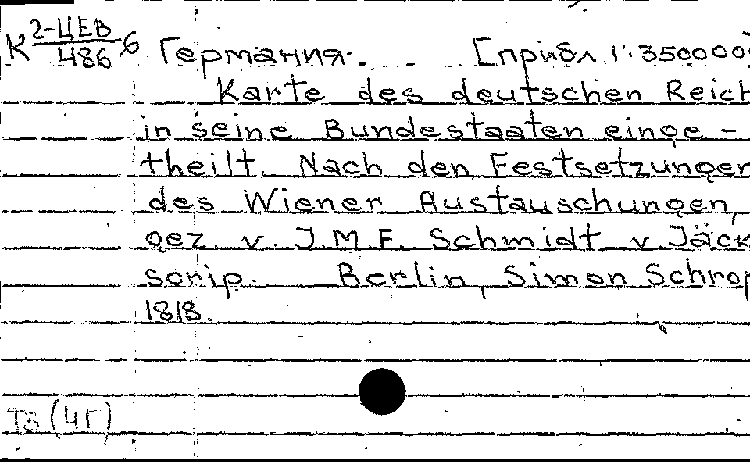 К 2-ЦЕВ/486 6 Германия. [прибл 1:350000]
Karte des deutschen Reich
in seine Bundestaaten einge-
theilt. Nach den Festsetzungen
des Wiener Austauschungen,
gez. v. J.M.F. Schmidt v. Jäck
scrip. Berlin, Simon Schrop
1818.
Тз (4Г)